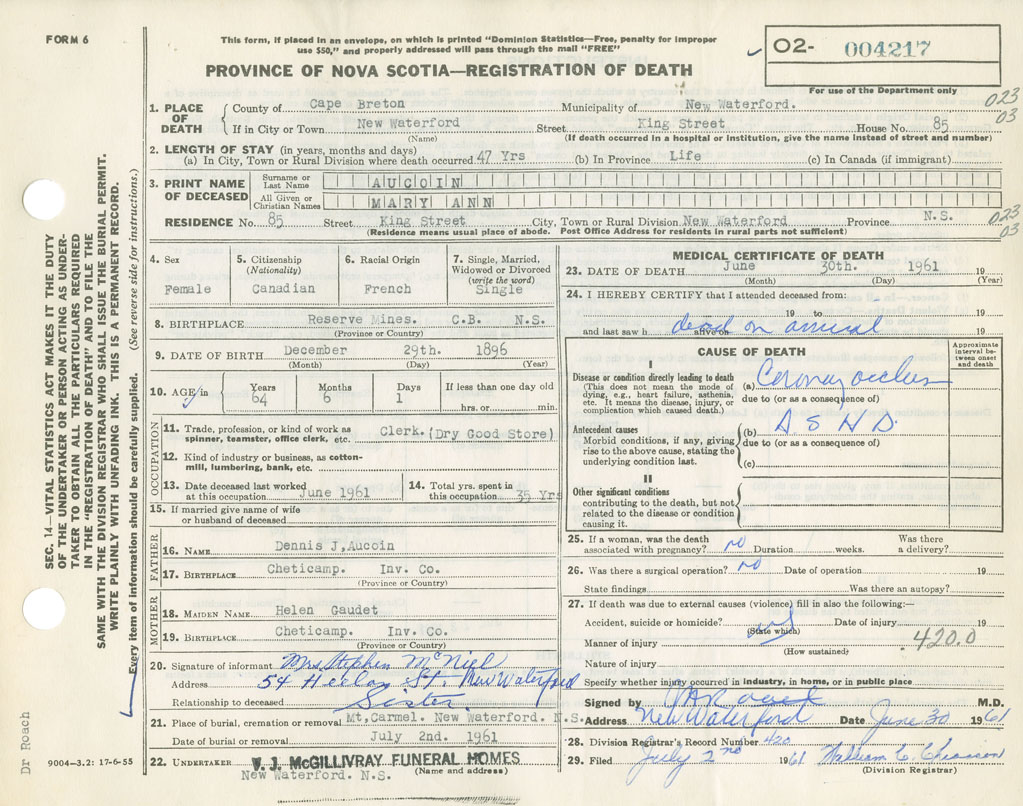 FORM 6
This form, if placed in an envelope, on which is printed "Dominion Statistics—Free, penalty for improper
use $50," and properly addressed will pass through the mail "FREE"
02- 004217
PROVINCE OF NOVA SCOTIA—REGISTRATION OF DEATH
For use of the Department only
1. PLACE OF DEATH
County of Cape Breton Municipality of New Waterford. 023
03
If in City or Town New Waterford Street King Street House No. 85
(Name) (If death occurred in a hospital or institution, give the name instead of street and number)
2. LENGTH OF STAY (in years, months and days)
(a) In City, Town or Rural Division where death occurred 47 Yrs (b) In Province Life (c) In Canada (if immigrant)
3. PRINT NAME OF DECEASED
Surname or Last Name AUCOIN
All Given or Christian Names MARY ANN
RESIDENCE No. 85 Street King Street City, Town or Rural Division New Waterford Province N.S. 023
03
(Residence means usual place of abode. Post Office Address for residents in rural parts not sufficient)
4. Sex
Female
5. Citizenship
(Nationality)
Canadian
6. Racial Origin
French
7. Single, Married,
Widowed or Divorced
(write the word)
Single
8. BIRTHPLACE Reserve Mines. C.B. N.S.
(Province or Country)
9. DATE OF BIRTH December 29th. 1896
(Month) (Day) (Year)
10. AGE in
Years 64
Months 6
Days 1
If less than one day old
hrs. or min.
OCCUPATION
11. Trade, profession, or kind of work as
spinner, teamster, office clerk, etc. Clerk. (Dry Good Store)
12. Kind of industry or business, as cotton-
mill, lumbering, bank, etc.
13. Date deceased last worked
at this occupation June 1961
14. Total yrs. spent in
this occupation 35 Yrs
15. If married give name of wife
or husband of deceased
FATHER
16. NAME Dennis J,Aucoin
17. BIRTHPLACE Cheticamp. Inv. Co.
(Province or Country)
MOTHER
18. MAIDEN NAME Helen Gaudet
19. BIRTHPLACE Cheticamp. Inv. Co.
(Province or Country)
20. Signature of informant Mrs. Stephen McNiel
Address 54 Heelan St. New Waterford
Relationship to deceased Sister.
21. Place of burial, cremation or removal Mt,Carmel. New Waterford. N.S.
Date of burial or removal July 2nd. 1961
22. UNDERTAKER V. J. McGILLIVRAY FUNERAL HOMES
New Waterford. N.S. (Name and address)
MEDICAL CERTIFICATE OF DEATH
23. DATE OF DEATH June 30th. 1961 19
(Month) (Day) (Year)
24. I HEREBY CERTIFY that I attended deceased from:
19 to 19
and last saw h alive on 19
dead on arrival
CAUSE OF DEATH
Approximate
interval be-
tween onset
and death
I
Disease or condition directly leading to death
(This does not mean the mode of
dying, e.g., heart failure, asthenia,
etc. It means the disease, injury, or
complication which caused death.)
(a) Coronary occlus
due to (or as a consequence of)
Antecedent causes
Morbid conditions, if any, giving
rise to the above cause, stating the
underlying condition last.
(b) A S H D.
due to (or as a consequence of)
(c)
II
Other significant conditions
contributing to the death, but not
related to the disease or condition
causing it.
25. If a woman, was the death
associated with pregnancy? no Duration weeks. Was there
a delivery?
26. Was there a surgical operation? no Date of operation 19
State findings Was there an autopsy?
27. If death was due to external causes (violence) fill in also the following:—
Accident, suicide or homicide? Date of injury 19
(State which)
Manner of injury 420.0
(How sustained)
Nature of injury
Specify whether injury occurred in industry, in home, or in public place
Signed by M.D.
Address New Waterford Date June 30 1961
28. Division Registrar's Record Number 420
29. Filed July 2nd 1961 William C. Chiasson
(Division Registrar)
SEC. 14—VITAL STATISTICS ACT MAKES IT THE DUTY
OF THE UNDERTAKER OR PERSON ACTING AS UNDER-
TAKER TO OBTAIN ALL THE PARTICULARS REQUIRED
IN THE "REGISTRATION OF DEATH" AND TO FILE THE
SAME WITH THE DIVISION REGISTRAR WHO SHALL ISSUE THE BURIAL PERMIT.
WRITE PLAINLY WITH UNFADING INK. THIS IS A PERMANENT RECORD.
Every item of information should be carefully supplied. (See reverse side for instructions.)
Dr Roach
9004—3.2: 17-6-55